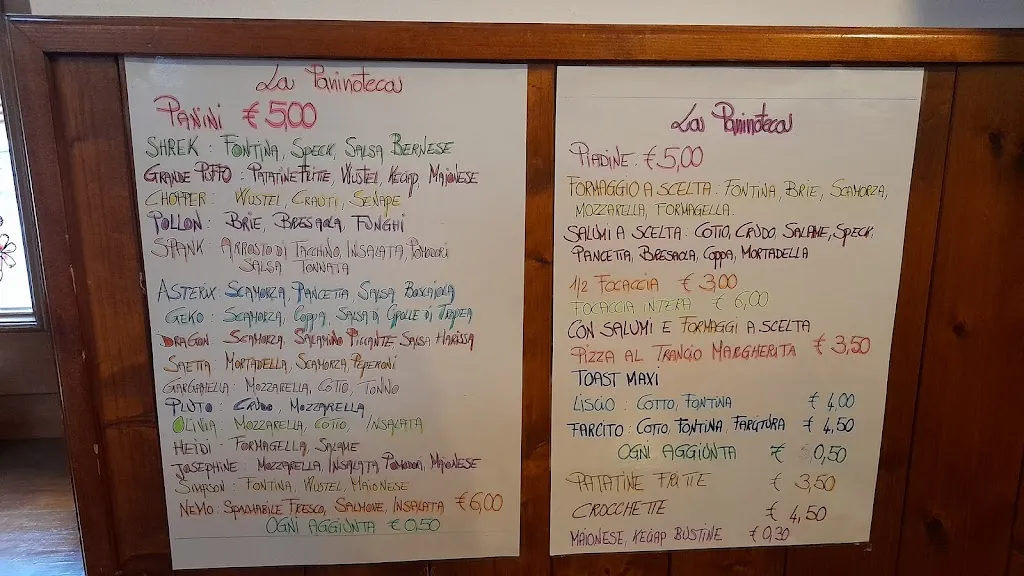 La Paninoteca
PANINI € 5,00
SHREK : FONTINA, SPECK, SALSA BERNESE
GRANDE PUFFO : PATATINE FRITTE, WUSTEL, KEGAP, MAIONESE
CHOPPER : WUSTEL, CRAUTI, SENAPE
POLLON : BRIE, BRESAOLA, FUNGHI
SPANK : ARROSTO DI TACCHINO, INSALATA, POMODORI
SALSA TONNATA
ASTERIX : SCAMORZA, PANCETTA, SALSA BOSCAIOLA
GEKO : SCAMORZA, COPPA, SALSA DI CIPOLLE DI TROPEA
DRAGON : SCAMORZA, SALAMINO PICCANTE, SALSA HARISSA
SAETTA : MORTADELLA, SCAMORZA, PEPERONI
GARGAMELLA : MOZZARELLA, COTTO, TONNO
PLUTO : CRUDO, MOZZARELLA
OLIVIA : MOZZARELLA, COTTO, INSALATA
HEIDI : FORMAGELLA, SALAME
JOSEPHINE : MOZZARELLA, INSALATA POMODORI, MAIONESE
SIMPSON : FONTINA, WUSTEL, MAIONESE
NEMO : SPALMABILE FRESCO, SALMONE, INSALATA € 6,00
OGNI AGGIUNTA € 0,50
La Paninoteca
PIADINE : € 5,00
FORMAGGIO A SCELTA : FONTINA, BRIE, SCAMORZA,
MOZZARELLA, FORMAGELLA.
SALUMI A SCELTA : COTTO, CRUDO, SALAME, SPECK,
PANCETTA, BRESAOLA, COPPA, MORTADELLA
1/2 FOCACCIA € 3,00
FOCACCIA INTERA € 6,00
CON SALUMI E FORMAGGI A SCELTA
PIZZA AL TRANCIO MARGHERITA € 3,50
TOAST MAXI
LISCIO : COTTO, FONTINA € 4,00
FARCITO : COTTO, FONTINA, FARCITURA € 4,50
OGNI AGGIUNTA € 0,50
PATATINE FRITTE € 3,50
CROCCHETTE € 4,50
MAIONESE, KEGAP BUSTINE € 0,30